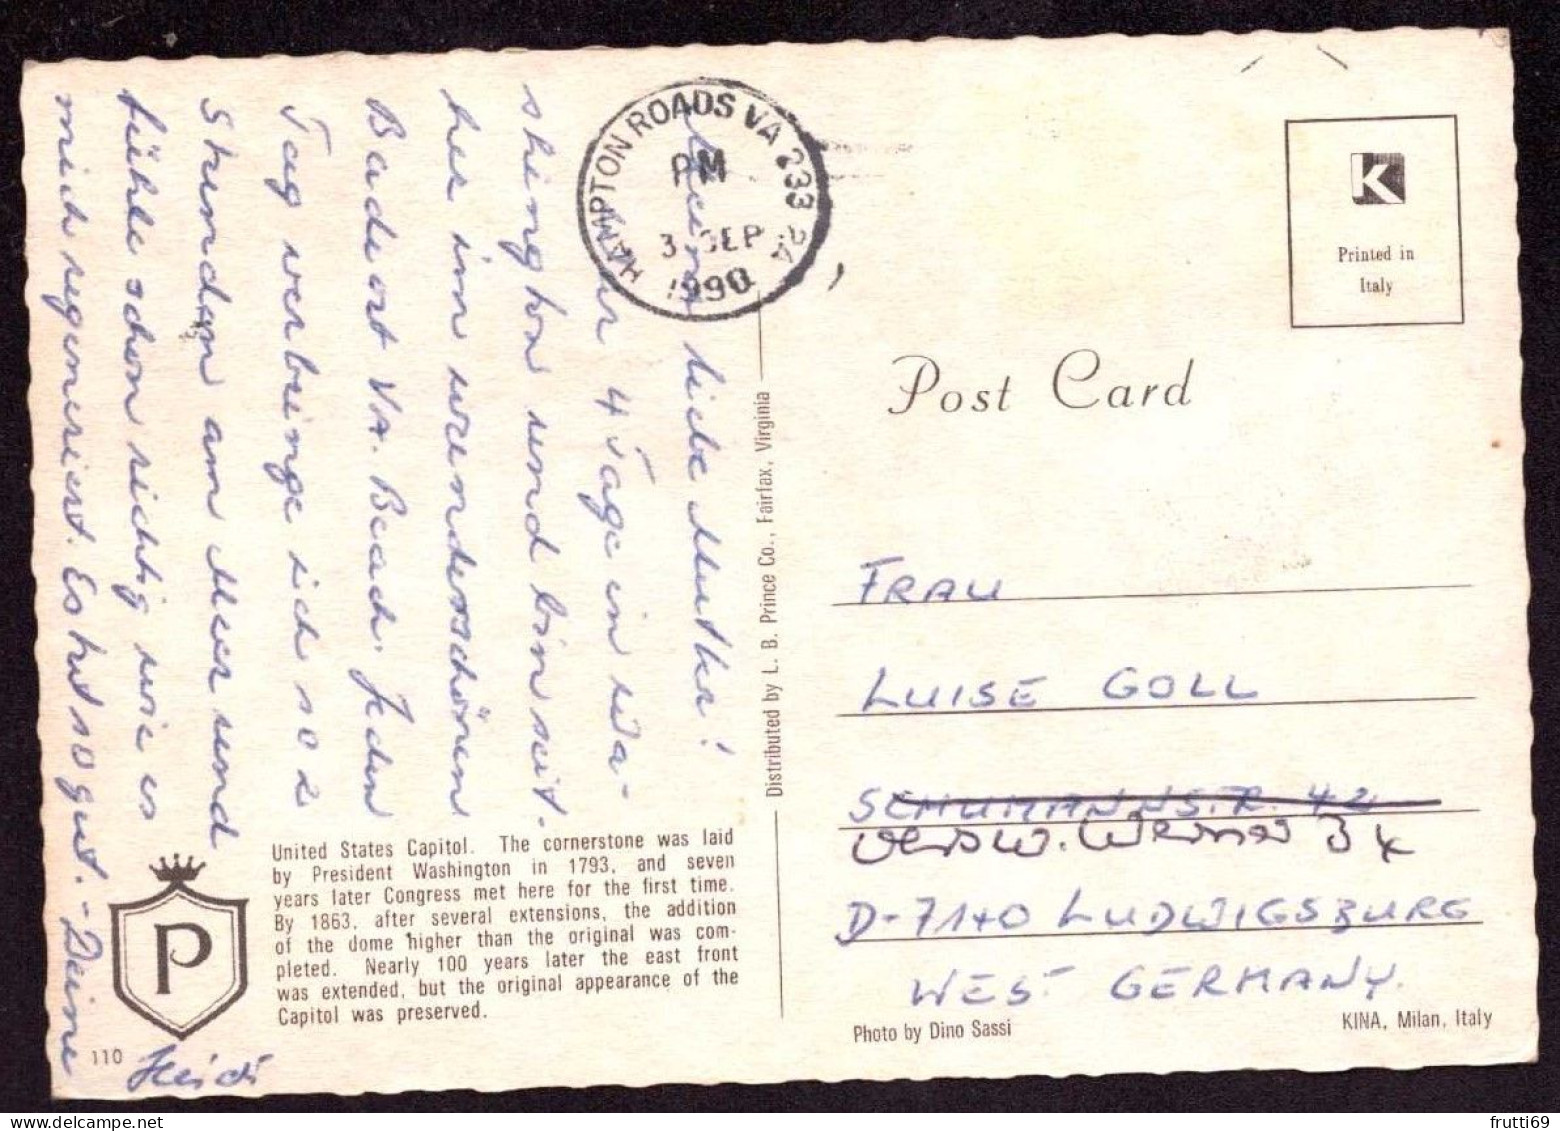 Meine liebe Mutter!
War 4 Tage in Wa-
shington und bin seit-
her im wunderschönen
Badeort VA. Beach. Jeden
Tag verbringe ich so 2
Stunden am Meer und
fühle schon richtig wie es
mich regeneriert. Es tut so gut. - Deine
Heidi
HAMPTON ROADS VA 233 24
PM
3 SEP
1990
Distributed by L. B. Prince Co., Fairfax, Virginia
United States Capitol. The cornerstone was laid
by President Washington in 1793, and seven
years later Congress met here for the first time.
By 1863, after several extensions, the addition
of the dome higher than the original was com-
pleted. Nearly 100 years later the east front
was extended, but the original appearance of the
Capitol was preserved.
P
110
K
Printed in
Italy
Post Card
FRAU
LUISE GOLL
SCHUMANNSTR. 42
D-7140 LUDWIGSBURG
WEST GERMANY.
Photo by Dino Sassi
KINA, Milan, Italy
frutti69